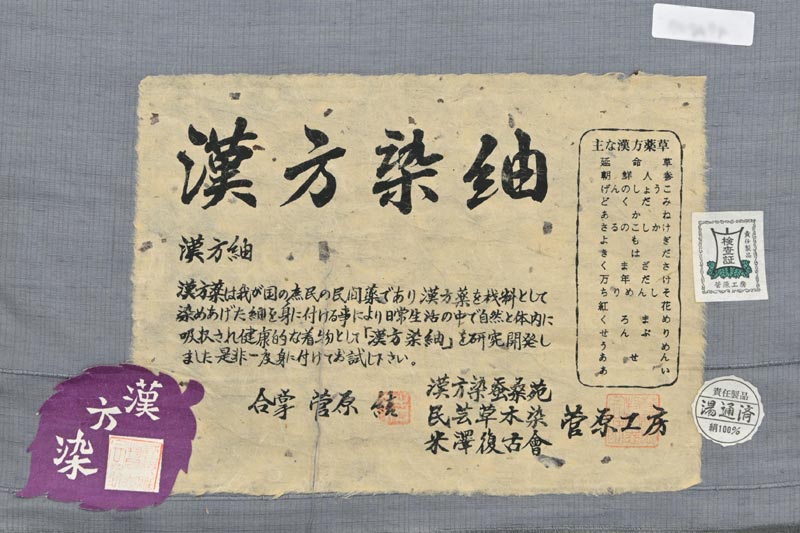 漢方染紬
漢方紬
漢方薬は我が国の庶民の民間薬であり漢方薬を材料として
染めあげた紬を身に付ける事により日常生活の中で自然と体内に
吸収され健康的な着物として「漢方染紬」を研究開発し
ました是非一度身に付けてお試し下さい。
合掌 菅原
漢方染蚕桑苑
民芸草木染
米澤復古會
菅原工房
主な漢方薬草
延命草
朝鮮人参
げんのしょうこ
どくだみ
あかね
さるのこしかけ
よもぎ
きはだ
くまざさ
万年だけ
ちりめんしそ
紅花
くろまめ
せんぶり
うめ
あせん
あい
責任製品
検査証
菅原工房
責任製品
湯通済
絹100%
漢方染